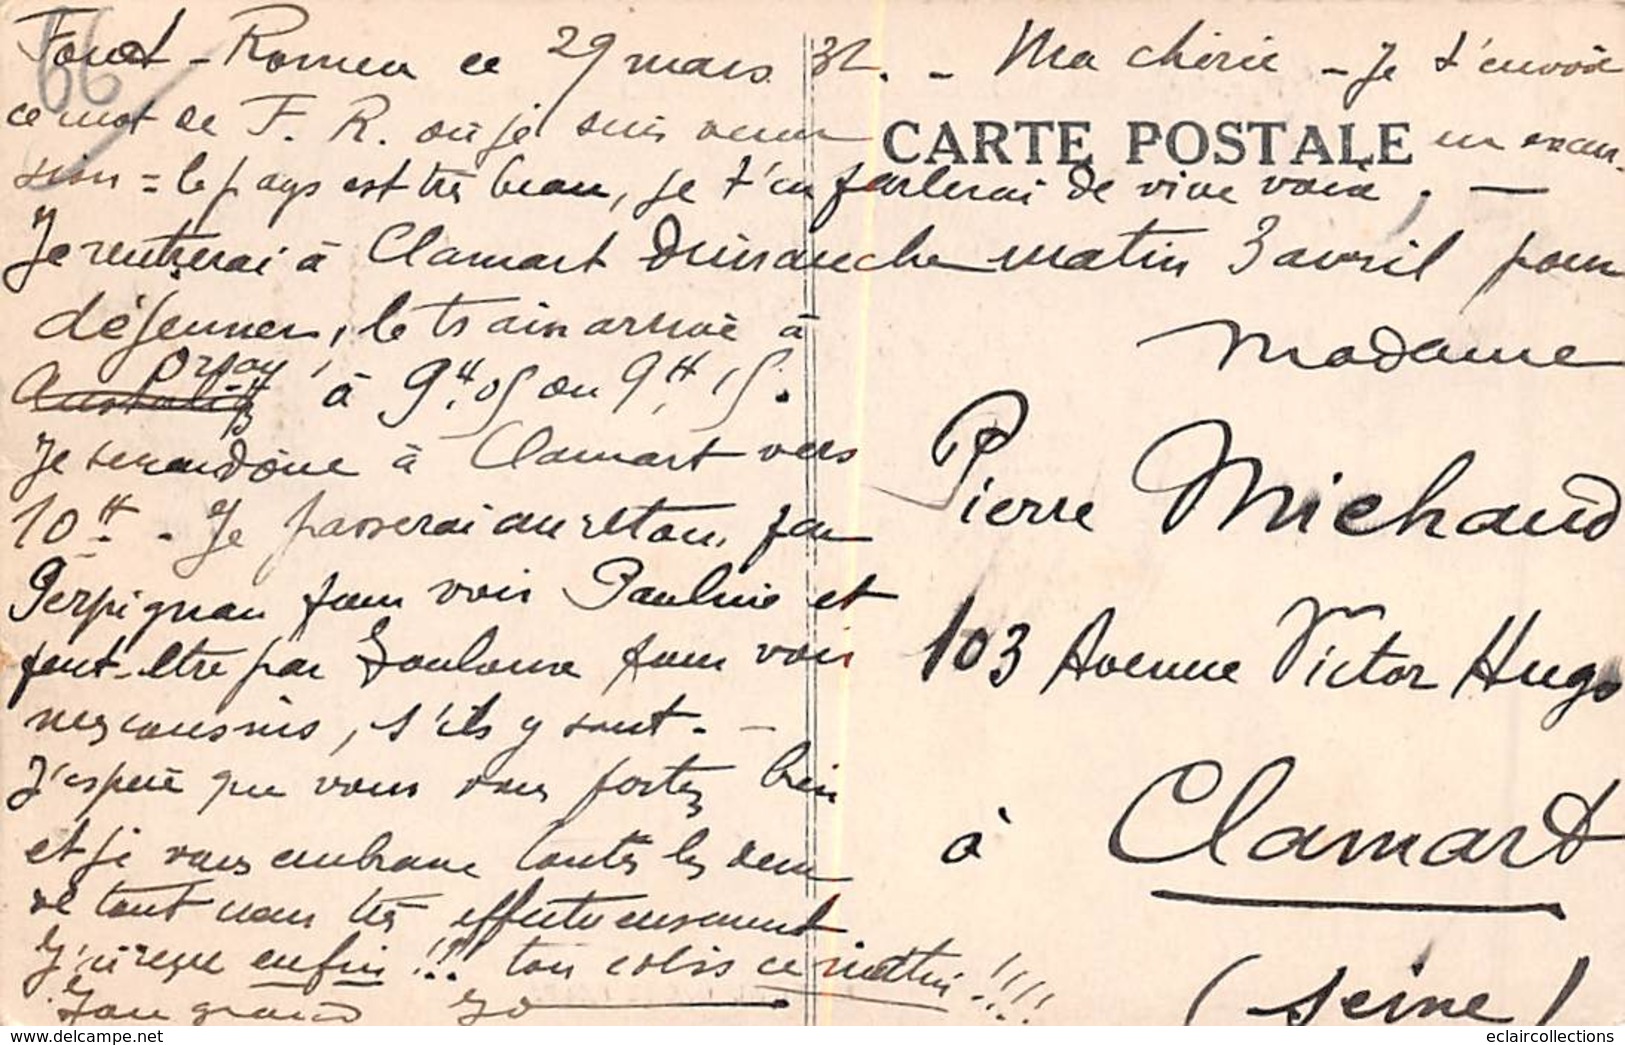 66
Font-Romeu ce 29 mars 32. - Ma chérie - Je t'envoie
ce mot de F. R. où je suis venu en excur-
CARTE POSTALE
sion = le pays est très beau, je t'en parlerai de vive voix, -
Je rentrerai à Clamart Dimanche matin 3 avril pour
déjeuner, le train arrive à
Orsay
Austerlitz à 9H.05 ou 9H.15.
Je serai donc à Clamart vers
10H. - Je passerai au retour par
Perpignan pour voir Pauline et
peut-être par Toulouse pour voir
nos cousins, s'ils y sont. -
J'espère que vous vous portez bien
et je vous embrasse toutes les deux
de tout cœur très affectueusement
J'ai reçu enfin !!! ton colis ce matin !!!!
Ton grand Jo
Madame
Pierre Michaud
103 Avenue Victor Hugo
à Clamart
(Seine)
eclaircollections